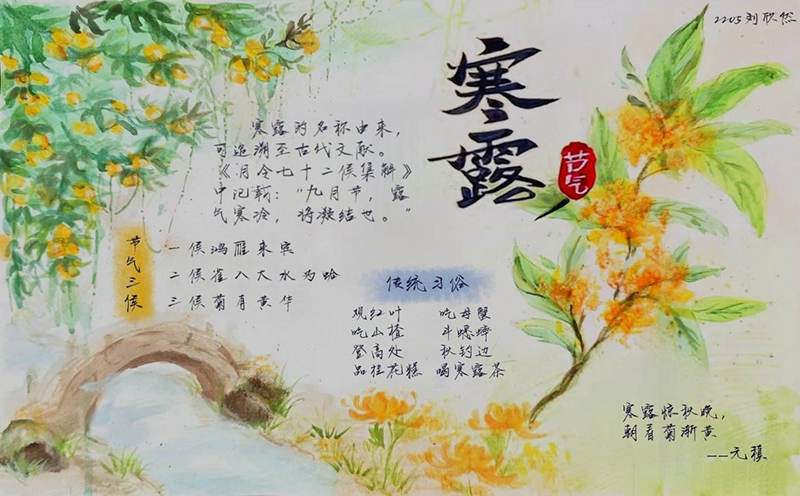 2205 刘欣然
寒露
节气
寒露的名称由来，
可追溯至古代文献。
《月令七十二候集解》
中记载："九月节，露
气寒冷，将凝结也。"
节气三候
一候鸿雁来宾
二候雀入大水为蛤
三候菊有黄华
传统习俗
观红叶 吃母蟹
吃山楂 斗蟋蟀
登高处 秋钓边
品桂花糕 喝寒露茶
寒露惊秋晚，
朝看菊渐黄
——元稹